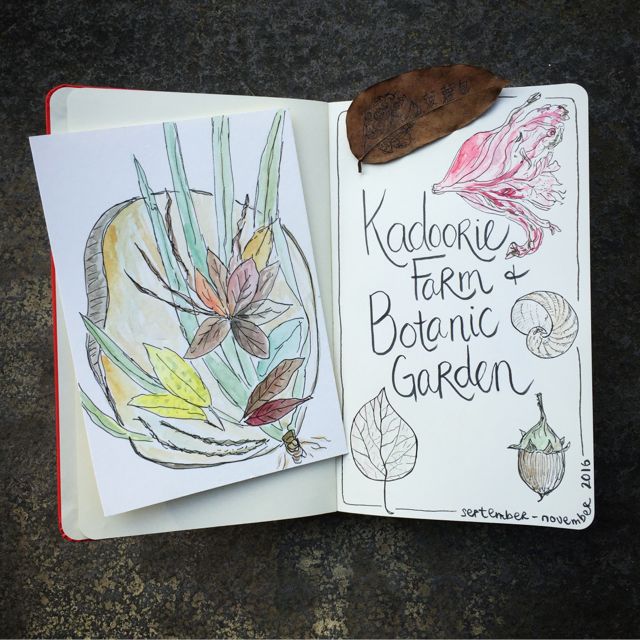 Kadoorie
Farm +
Botanic
Garden
september - november 2016